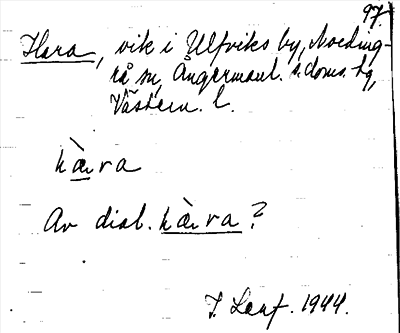 97.
Hæra, vik i Ulfviks by, Noding-
rå sn, Ångermanl. s. doms. tg,
Västern. l.
hæ̀ra
Av dial. hæ̀ra?
J. Lenf. 1944.